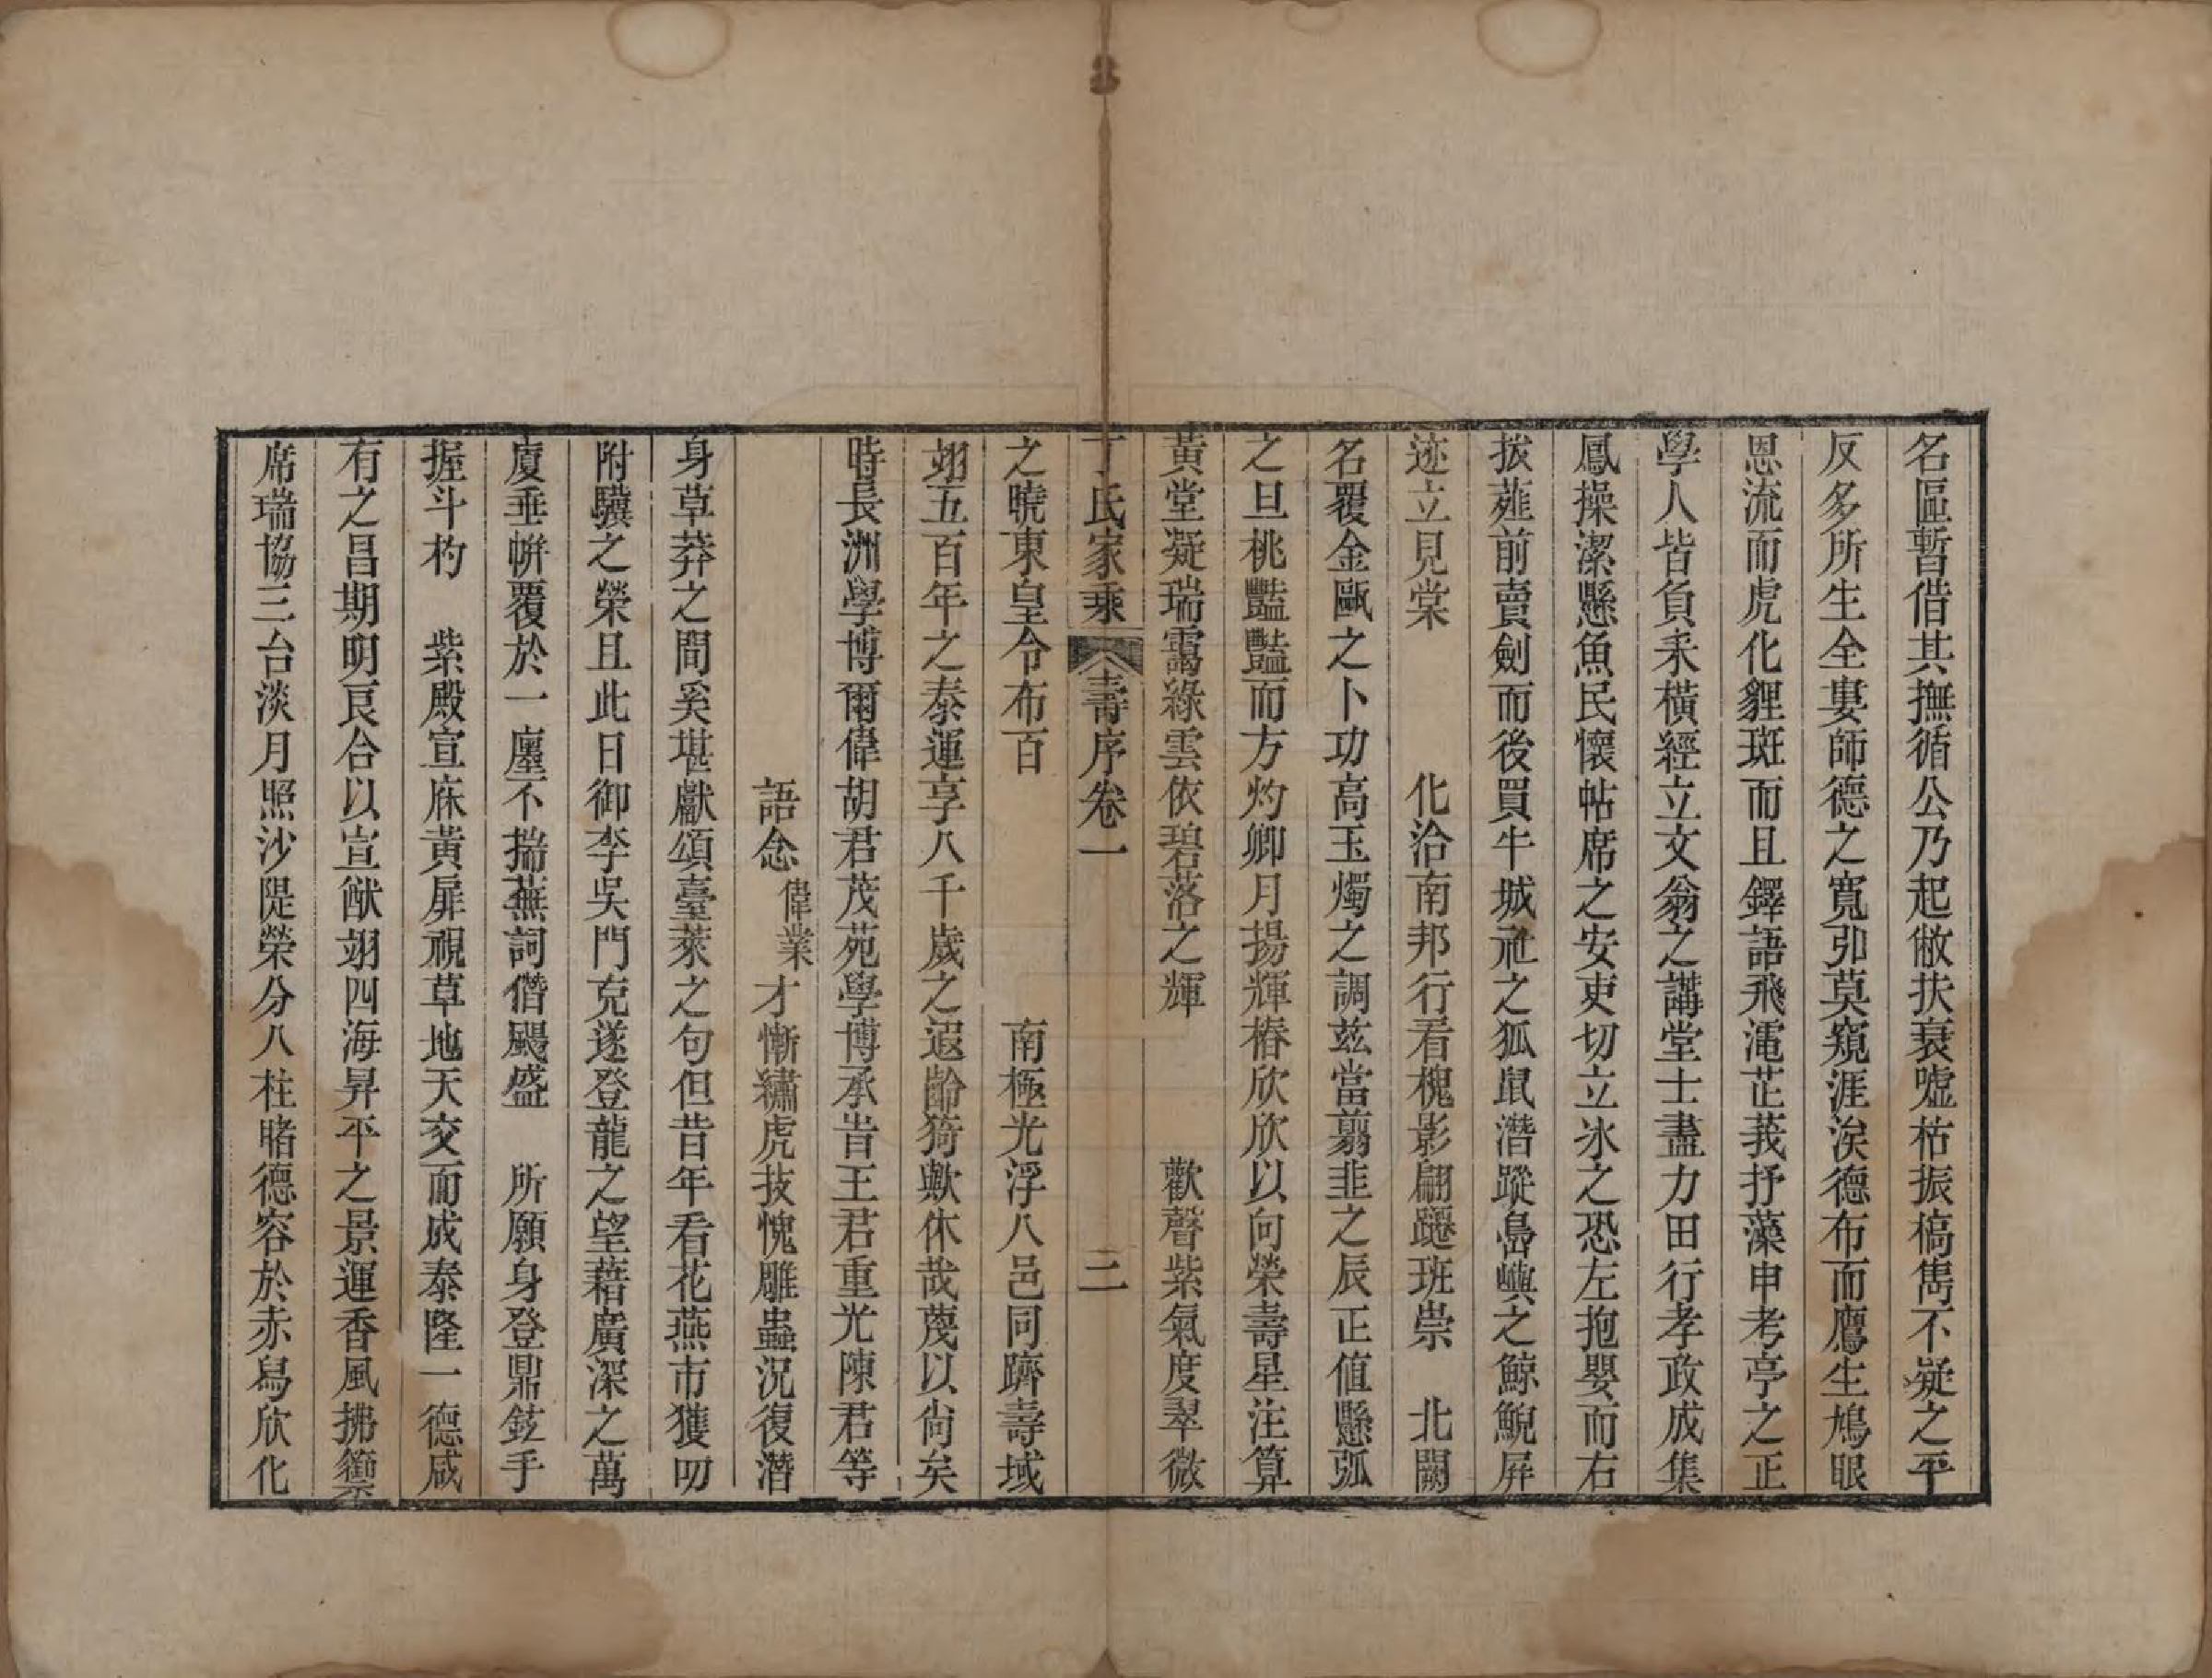 名區暫借其撫循公乃起敝扶衰噓枯振槁雋不疑之平
反多所生全婁師德之寬卭莫窺涯涘德布而鷹生鳩眼
恩流而虎化貍斑而且鐸語飛澠芷莪抒藻申考亭之正
學人皆負耒橫經立文翁之講堂士盡力田行孝政成集
鳳操潔懸魚民懷帖席之安吏切立冰之恐左抱嬰而右
拔薤前賣劍而後買牛城社之狐鼠潛蹤島嶼之鯨鯢屏
迹立見棠　　　化洽南邦行看槐影翩躚班崇　北闕
名覆金甌之卜功高玉燭之調茲當翦韭之辰正值懸弧
之旦桃豔豔而方灼卿月揚輝椿欣欣以向榮壽星注算
黃堂凝瑞靄綠雲依碧落之輝　　　歡聲紫氣度翠微
丁氏家乘　壽序卷一　二
之曉東皇令布百　　　　　南極光浮八邑同躋壽域
翊五百年之泰運享八千歲之遐齡猗歟休哉蔑以尙矣
時長洲學博爾偉胡君茂苑學博承峕王君重光陳君等
語念偉業才慚繡虎技愧雕蟲況復潛
身草莽之間奚堪獻頌臺萊之句但昔年看花燕市獲叨
附驥之榮且此日御李吳門克遂登龍之望藉廣深之萬
廈垂帡覆於一廛不揣蕪詞僭颺盛　所願身登鼎鉉手
握斗杓　紫殿宣麻黃扉視草地天交而成泰隆一德咸
有之昌期明良合以宣猷翊四海昇平之景運香風拂御
席瑞協三台淡月照沙隄榮分八柱睹德容於赤舄欣化